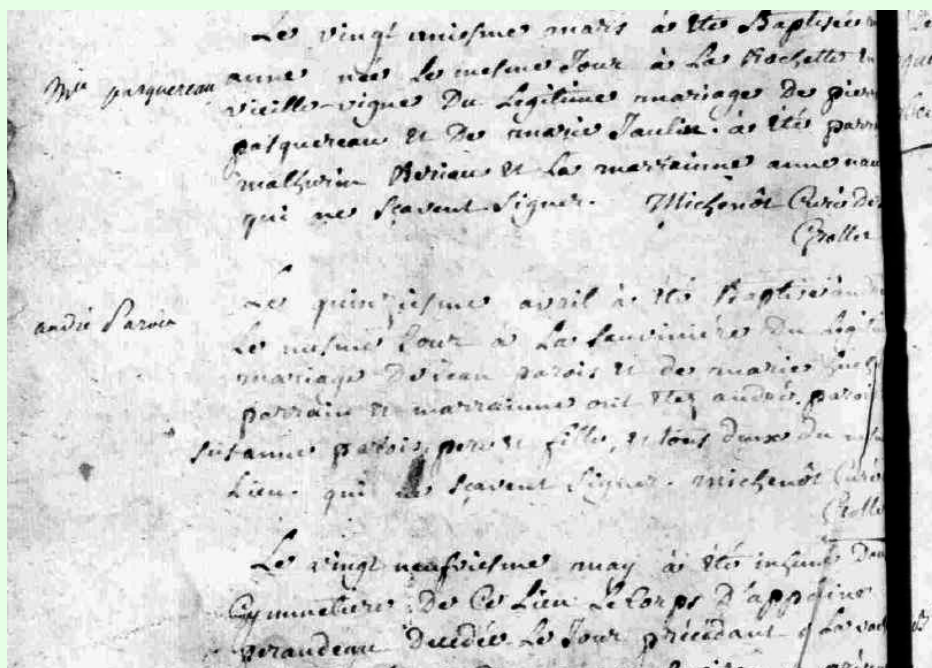 Le vingt uniesme mars à été Baptisée
Mie pasquereau
anne née Le mesme Jour à La Rochette en
vieille-vigne Du Legitime mariage de pierre
pasquereau et De marie Jaulin. à été parrain
mathurin Moriau et La marrainne anne
qui ne sçavent Signer. Michenôt Curé des
Grolles
Le quinziesme avril à été Baptisé andré
andré Parois
Le mesme Jour à La Sauviniere Du Legiti
mariage De jean parois et de marie
parrain et marrainne ont étez andré parois
susanne parois pere et fille, et tous deux du
Lieu. qui ne sçavent Signer. michenôt Curé
Grolle
Le vingt neufviesme may à été inhumé Dans
Cymmetiere De Ce Lieu Le Corps D'
perandeau Decedée Le Jour précédant à La